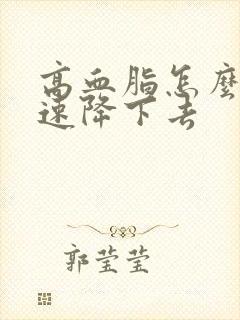 高血脂怎麼
速降下去
郭莹莹